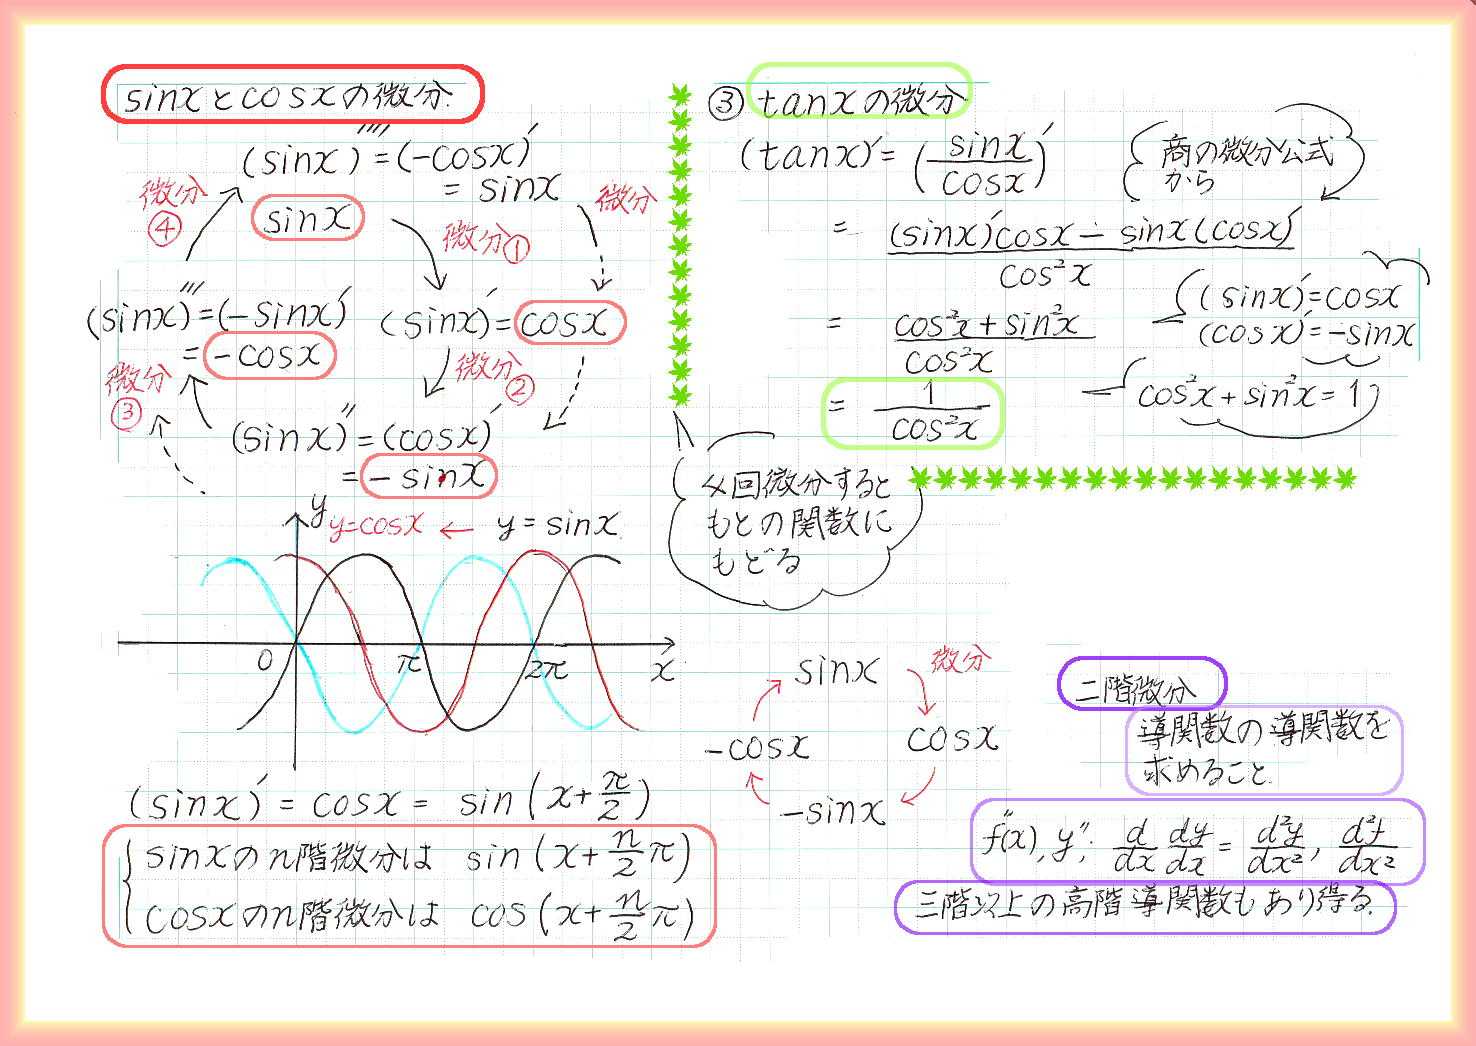 sinxとcosxの微分.
(sinx)''''=(-cosx)'
= sinx
sinx
微分
④
微分①
微分
(sinx)'''=(-sinx)'
= -cosx
(sinx)'= cosx
微分
③
微分
②
(sinx)''=(cosx)'
= -sinx
y
y=cosx ← y=sinx
0
π
2π
x
(sinx)' = cosx = sin(x+π/2)
sinxのn階微分は sin(x+n/2 π)
cosxのn階微分は cos(x+n/2 π)
③ tanxの微分
(tanx)'= (sinx/cosx)'
商の微分公式
から
= (sinx)'cosx - sinx(cosx)'
cos²x
(sinx)'=cosx
(cosx)'=-sinx
= cos²x+sin²x
cos²x
cos²x+sin²x=1
= 1
cos²x
4回微分すると
もとの関数に
もどる
sinx
微分
cosx
-cosx
-sinx
二階微分
導関数の導関数を
求めること.
f''(x), y'', d/dx dy/dx = d²y/dx², d²f/dx²
三階以上の高階導関数もあり得る.